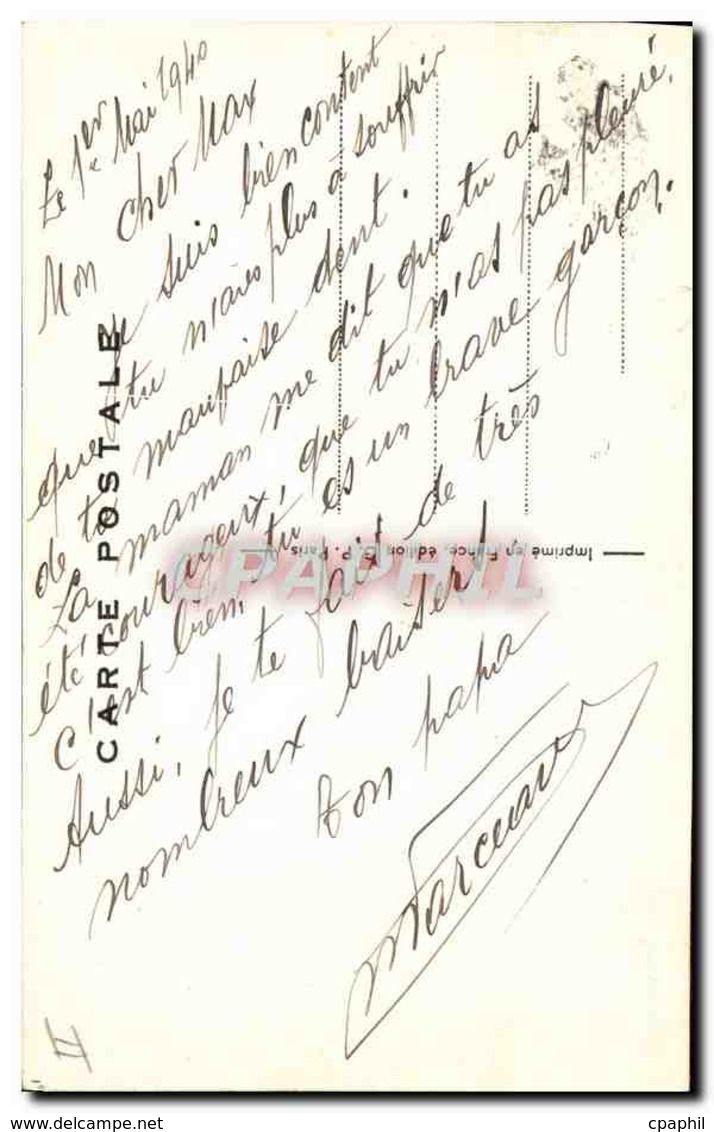 Le 1er Mai 1940
Mon cher Max
Je suis bien content
que tu n'aies plus à souffrir
de ta mauvaise dent.
La maman me dit que tu as
été courageux, que tu n'as pas pleuré,
c'est bien, tu es un brave garçon.
Aussi, je te fais de très
nombreux baisers!
ton papa
CARTE POSTALE
Imprimé en France, édition G. P. Paris
CPAPHIL
II
Delcampe.net
cpaphil